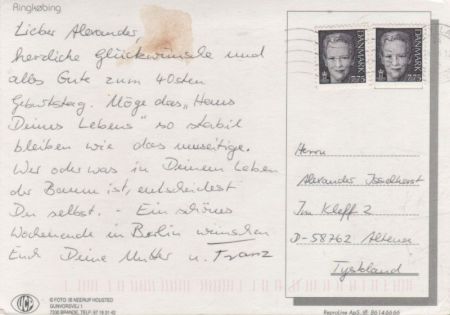 Ringkøbing
Lieber Alexander,
herzliche Glückwünsche und
alles Gute zum 40sten
Geburtstag. Möge das „Haus
Deines Lebens" so stabil
bleiben wie das umseitige.
Wer oder was in Deinem Leben
der Baum ist, entscheidest
Du selbst. – Ein schönes
Wochenende in Berlin wünschen
Euch Deine Mutter u. Franz
DANMARK
7.75
DANMARK
7.75
Herrn
Alexander
Im Kleff 2
D-58762 Altena
Tyskland
© FOTO: IB NEERUP HOUSTED
GUNVORSVEJ 1
7330 BRANDE, TLF. 97 18 01 02
ReproLine ApS · 86 14 66 66